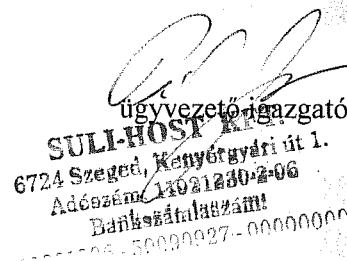 ügyvezető-igazgató
SULI-HOST KFT.
6724 Szeged, Kenyérgyári út 1.
Adószám: 11021230-2-06
Bankszámlaszám:
50090927-00000000